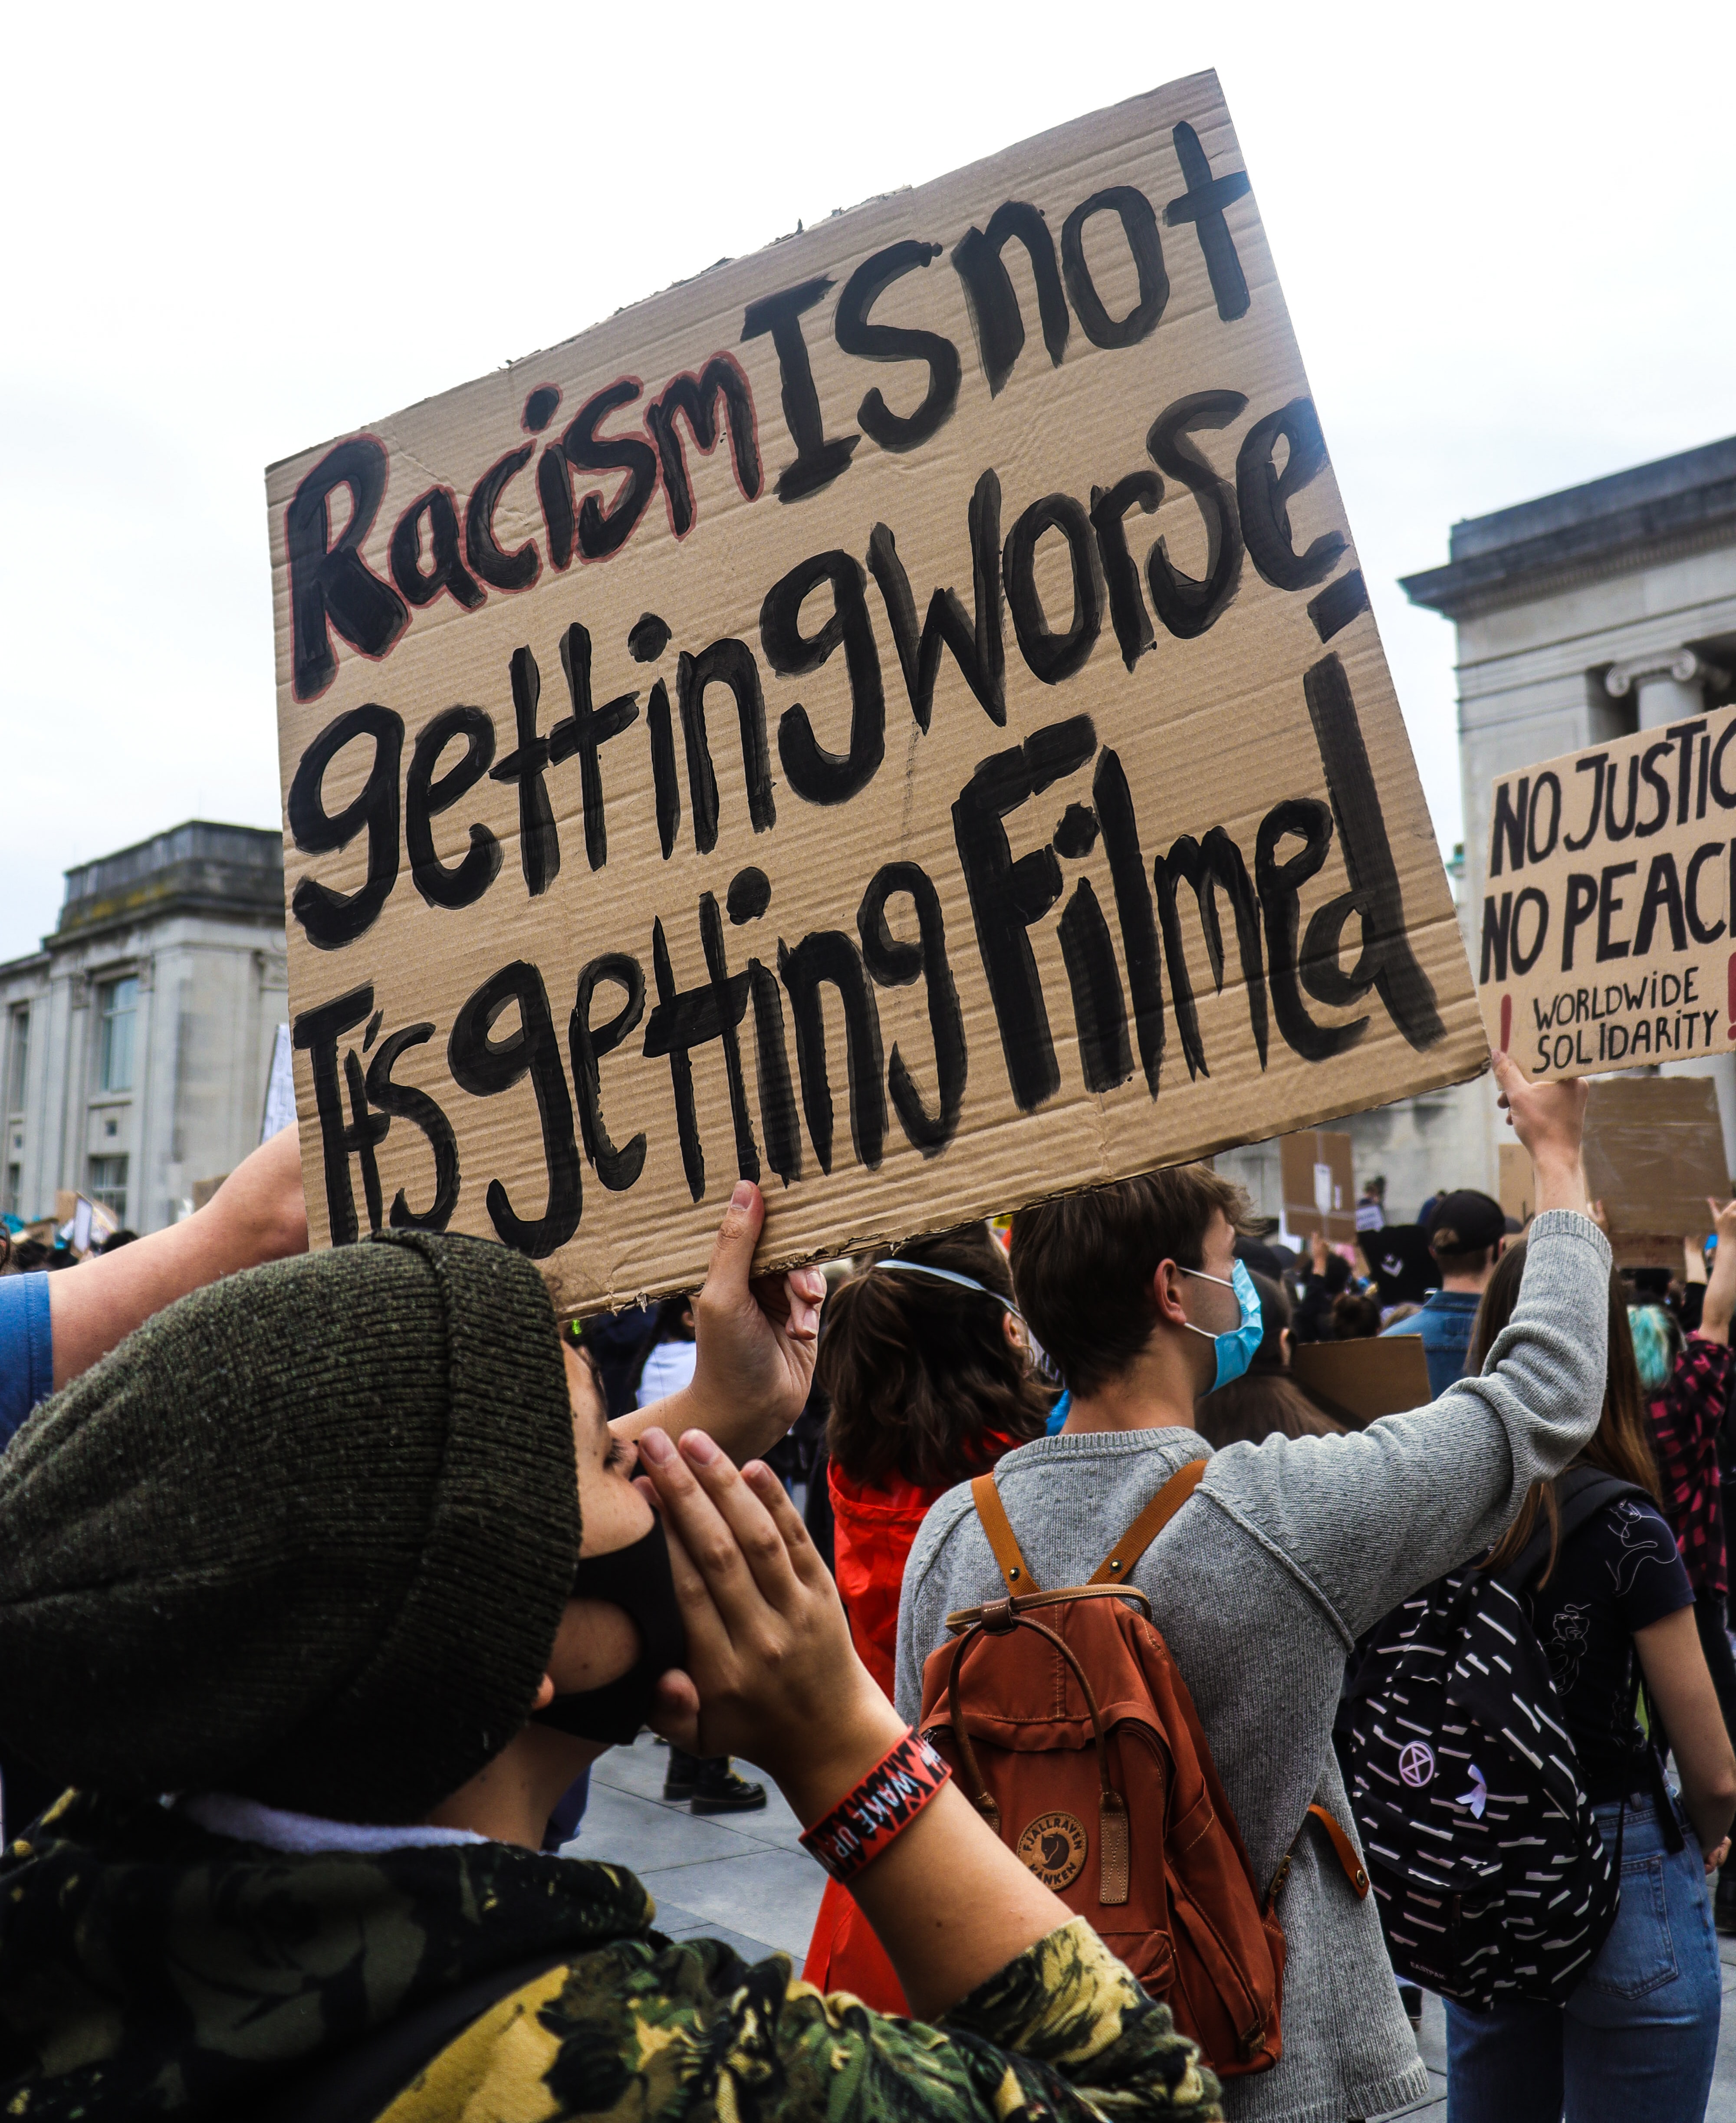 Racism IS not
getting worse,
It's getting Filmed
NO JUSTIC
NO PEAC
! WORLDWIDE !
SOLIDARITY
WAKE UP
FJÄLLRÄVEN
KÅNKEN
EASTPAK